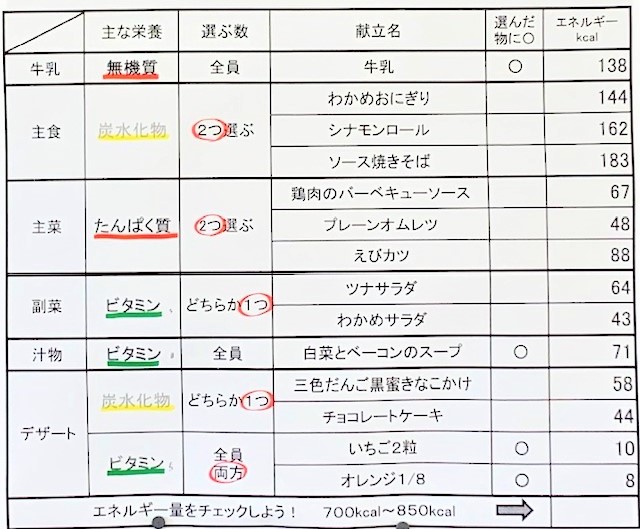 主な栄養 選ぶ数 献立名 選んだ物に○ エネルギーkcal
牛乳 無機質 全員 牛乳 ○ 138
主食 炭水化物 2つ選ぶ わかめおにぎり 144
シナモンロール 162
ソース焼きそば 183
主菜 たんぱく質 2つ選ぶ 鶏肉のバーベキューソース 67
プレーンオムレツ 48
えびカツ 88
副菜 ビタミン どちらか1つ ツナサラダ 64
わかめサラダ 43
汁物 ビタミン 全員 白菜とベーコンのスープ ○ 71
デザート 炭水化物 どちらか1つ 三色だんご黒蜜きなこかけ 58
チョコレートケーキ 44
ビタミン 全員両方 いちご2粒 ○ 10
オレンジ1/8 ○ 8
エネルギー量をチェックしよう! 700kcal~850kcal